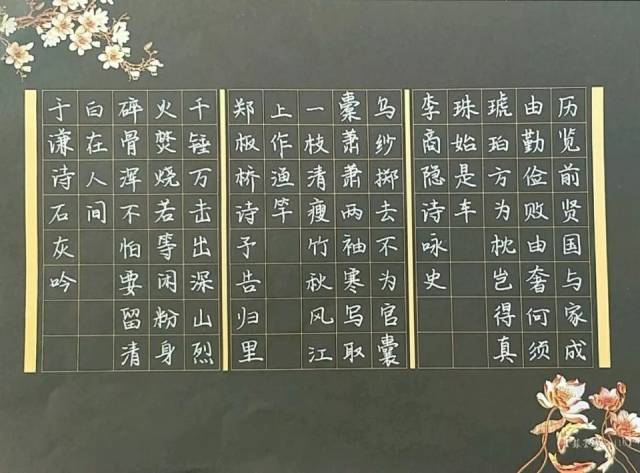 历览前贤国与家成
由勤俭败由奢何须
琥珀方为枕岂得真
珠始是车
李商隐诗咏史
乌纱掷去不为官囊
橐萧萧两袖寒写取
一枝清瘦竹秋风江
上作渔竿
郑板桥诗予告归里
千锤万击出深山烈
火焚烧若等闲粉身
碎骨浑不怕要留清
白在人间
于谦诗石灰吟